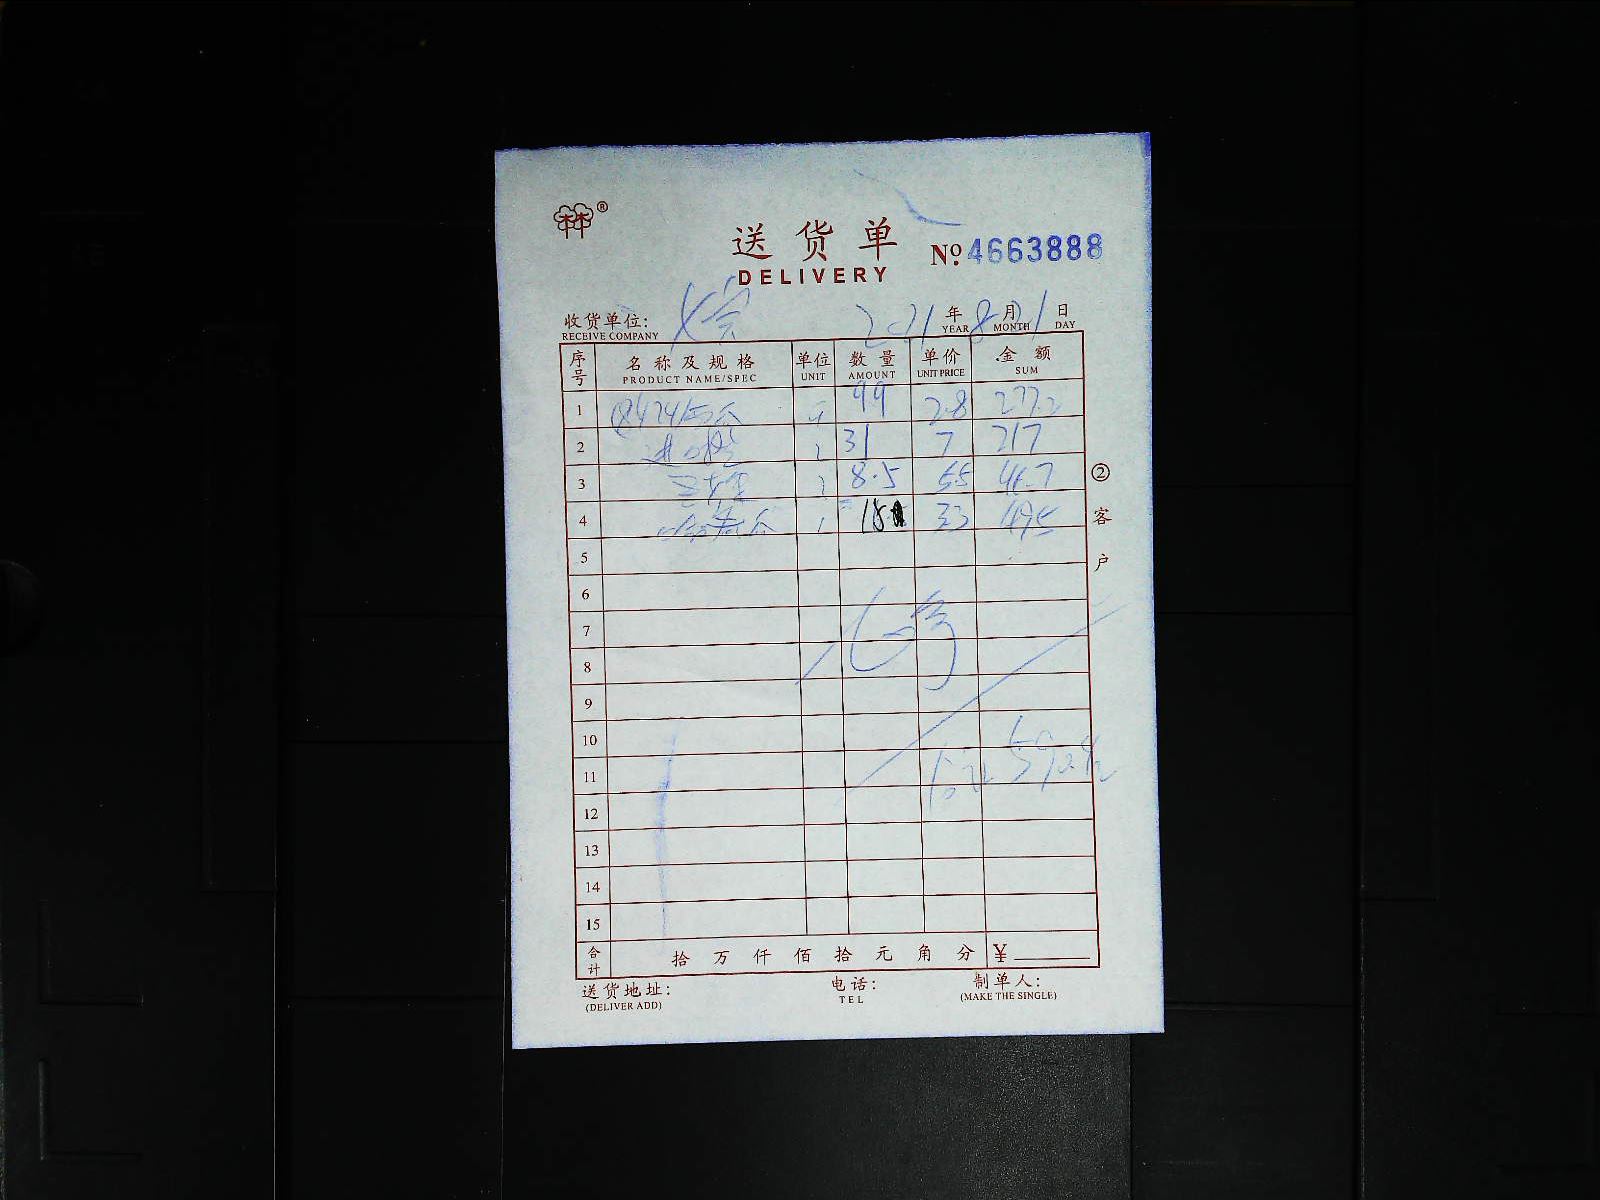 ®
送货单
DELIVERY
No. 4663888
收货单位:
RECEIVE COMPANY
2021 年 8 月 21 日
YEAR MONTH DAY
序号 名称及规格 单位 数量 单价 金额
PRODUCT NAME/SPEC UNIT AMOUNT UNIT PRICE SUM
1 99 2.8 277.2
2 进口 31 7 217
3 8.5 5.5 46.7
4 15 33 49.5
5
6
7
8
9
10
11 590.4
12
13
14
15
合计 拾 万 仟 佰 拾 元 角 分 ¥
② 客户
送货地址: 电话: 制单人:
(DELIVER ADD) TEL (MAKE THE SINGLE)